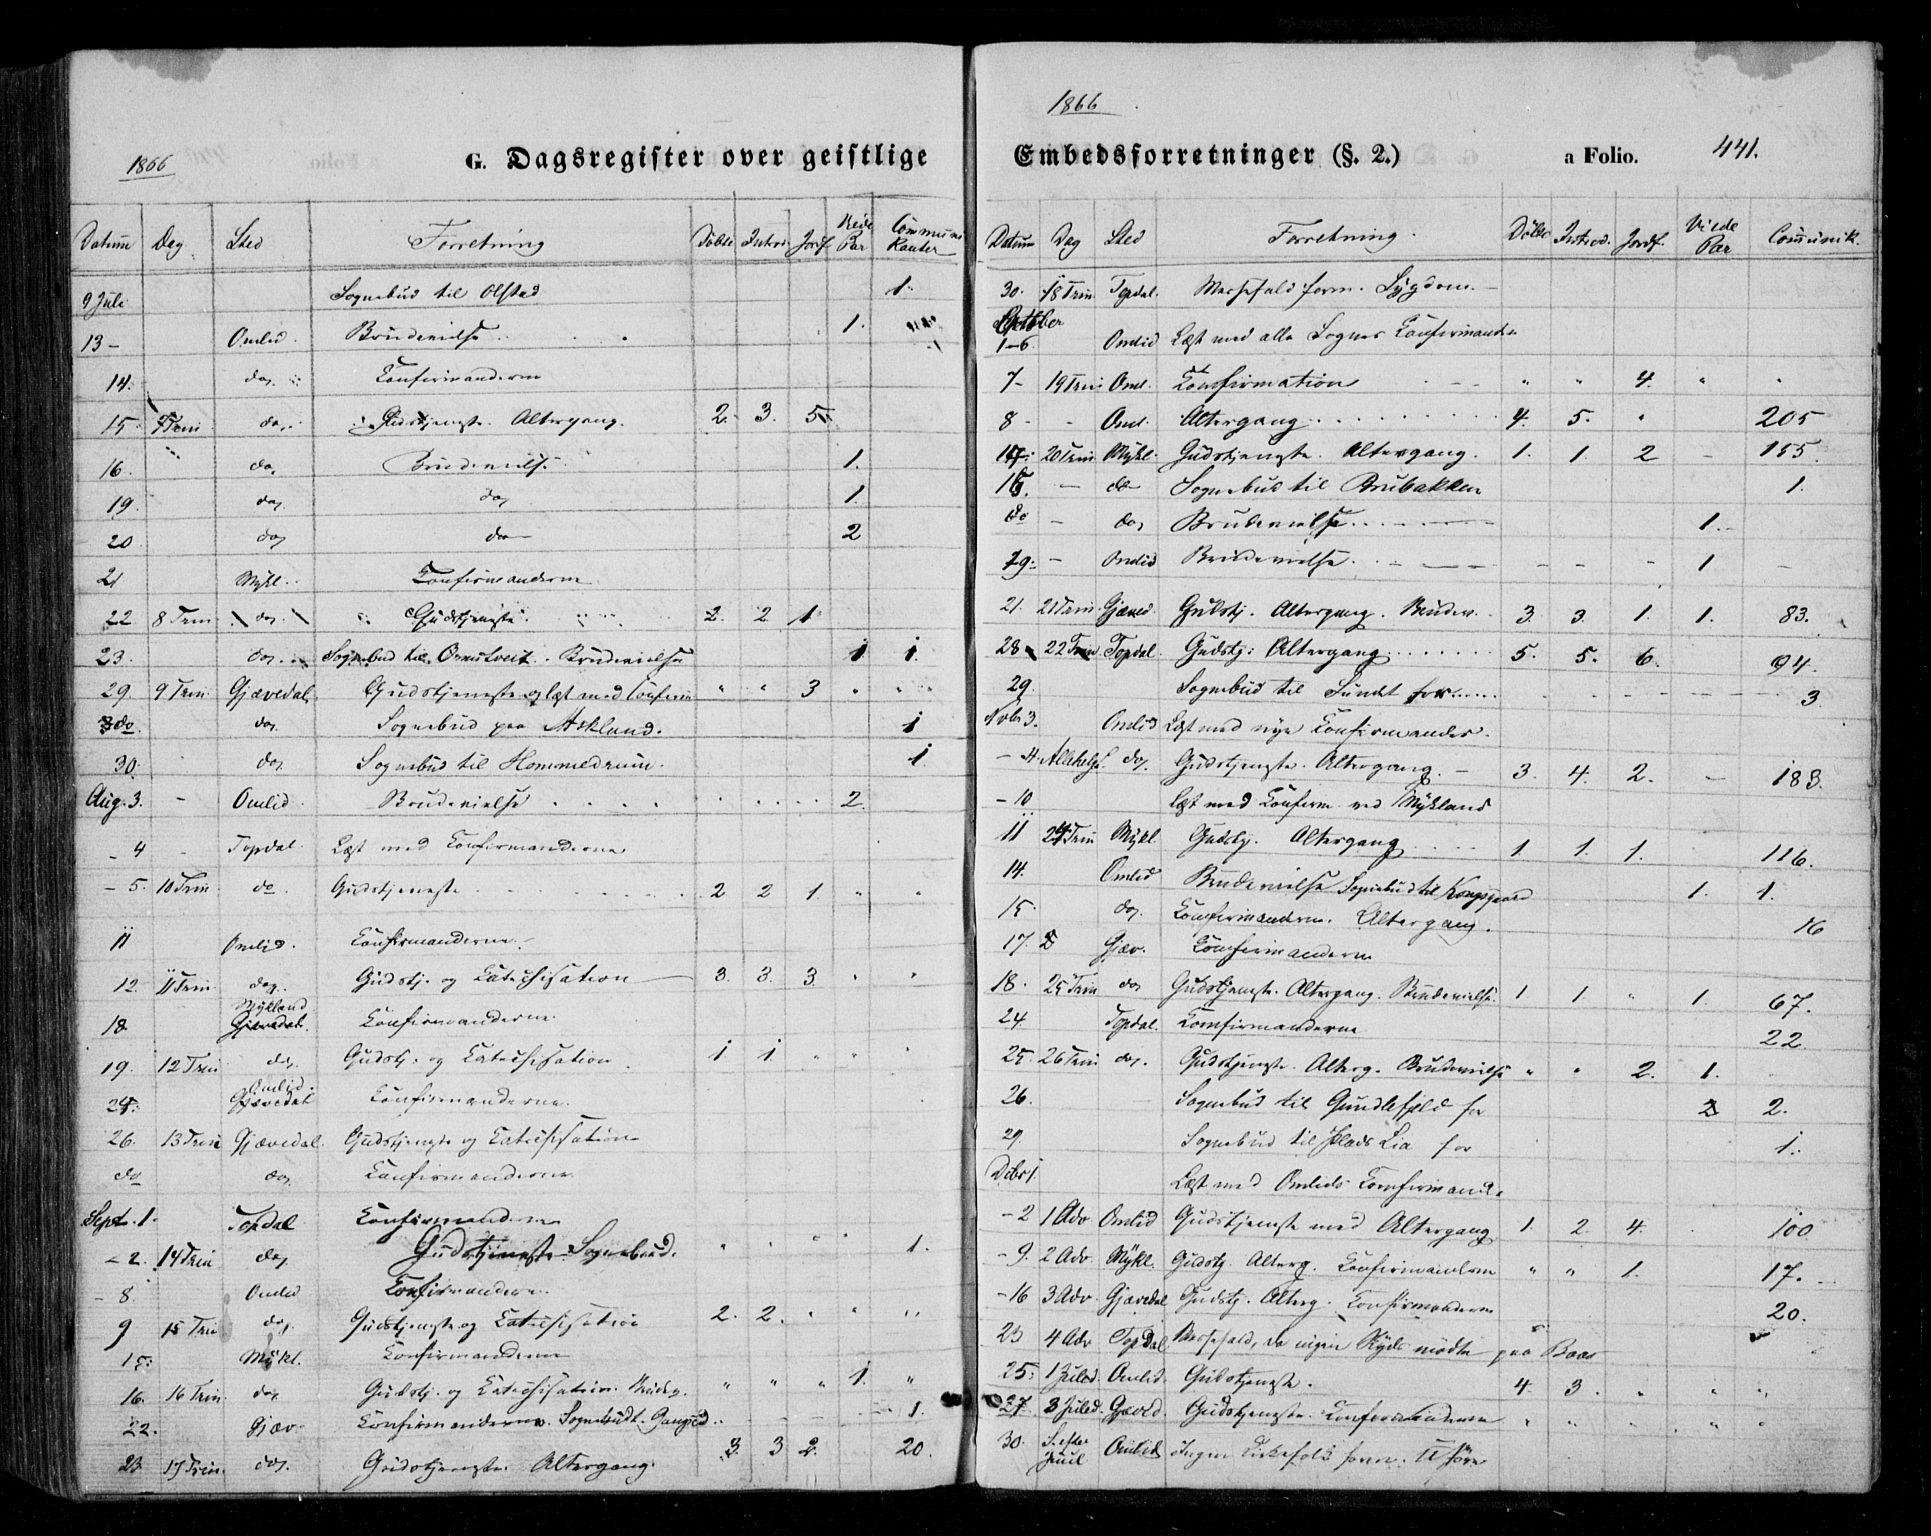 1866
G. Dagsregister over geistlige
Datum Dag Sted Forretning Døbte Introd. Jordf. Viede Par Communikanter
9 Juli Sognebud til Olstad 1.
13 - Omlid. Brudevielse 1.
14. do. Confirmanderne
15 7 Trin do. Gudstjeneste. Altergang. 2. 3. 5
16. do. Brudevielse 1.
19 do. do. 1.
20 do. do 2
21 Mykl. Confirmanderne
22 8 Trin do. Gudstjeneste. 2. 2 1
23. do. Sognebud til Brudevielse 1 1.
29. 9 Trin. Gjævedal Gudstjeneste og læst med Confirm " " 3 " "
do do. Sognebud paa Askland. 1
30. do. Sognebud til Hommedrum. 1.
Aug. 3. - Omlid. Brudevielse 2.
- 4 - Topdal. Læst med Confirmanderne
- 5. 10 Trin do. Gudstjeneste 2 2 1 " "
11 Omlid. Confirmanderne
12. 11 Trin do. Gudstj. og Catechisation 3. 3. 3. " "
18 Mykland Gjævedal. Confirmanderne
19. 12 Trin do. Gudstj. og Catechisation 1 1 " " "
Omlid.
Gjævedal Confirmanderne.
26. 13 Trin Gjævedal. Gudstjeneste og Catechisation
do do. Confirmanderne
Sept. 1. Topdal Confirmanderne
- 2. 14 Trin do. Gudstjeneste Sognebud. " " " " 1.
- 8. Omlid Confirmanderne
9 15 Trin do. Gudstjeneste og Catechisation 2. 2. " " "
15. Mykl. Confirmanderne
16. 16 Trin. do. Gudstj. og Catechisation. Brudev. " " " 1. "
22. Gjæv. Confirmanderne. Sognebud 1.
23 17 Trin. do. Gudstjeneste. Altergang. 3. 3 2. 20.
1866
Embedsforretninger (§. 2.) a Folio. 441.
Datum Dag Sted Forretning. Døbte Introd. Jordf. Viede Par Communik.
30. 18 Trin. Topdal. Messefald form. Sygdom.
October
1-6. Omlid Læst med alle Sognes Confirmander
7 - 19 Trin Oml. Confirmation " " 4. " "
8 - - Oml. Altergang 4. 5. " 205
20 Trin. Mykl. Gudstjeneste. Altergang. 1. 1. 2 - 155.
- do Sognebud til Brubakken 1.
do - do. Brudevielse 1.
- Omlid Brudevielse 1
21. 21 Trin. Gjæved. Gudstj. Altergang. Brudev. 3. 3. 1. 1. 83.
28 22 Trin Topdal. Gudstj: Altergang 5. 5. 6. 94.
29. Sognebud til Sundet for 3.
Novbr 3. Omlid Læst med nye Confirmander.
- 4. Allehelg. do. Gudstjeneste. Altergang. 3. 4. 2. - 183.
- 10 Læst med Confirm. ved Mykland
11 24 Trin Mykl. Gudstj. Altergang 1. 1. 1. 116.
14. Omlid Brudevielse Sognebud til Kongsgaard 1. 1.
15. do. Confirmanderne. Altergang. 16
17. Gjæv. Confirmanderne
18. 25 Trin do. Gudstjeneste. Altergang. Brudevielse. 1 1. " 1. 67.
24. Topdal. Confirmanderne 22.
25. 26 Trin do. Gudstjeneste. Alterg. Brudevielse " " 2. 1.
26. Sognebud til Gundlefjeld for 2.
29. Sognebud til Plads Lia for 1.
Decbr 1. Læst med Omlids Confirmander
- 2 1 Adv Omlid Gudstjeneste med Altergang 1. 2 4. 100
- 9. 2 Adv Mykl. Gudstj. Alterg. Confirmanderne " " 1. 17.
- 16 3 Adv. Gjævedal Gudstj. Alterg. Confirmanderne 20.
23 4 Adv Topdal Messefald, da ingen Skyds mødte paa Baas
25. 1 Juled. Omlid. Gudstjeneste. 4. 3. " " "
27. 3 Juled. Gjævd. Gudstjeneste. Confirmanderne " " " " "
30. S. efter Juul Omlid Ingen Kirkefolk form. Uføre